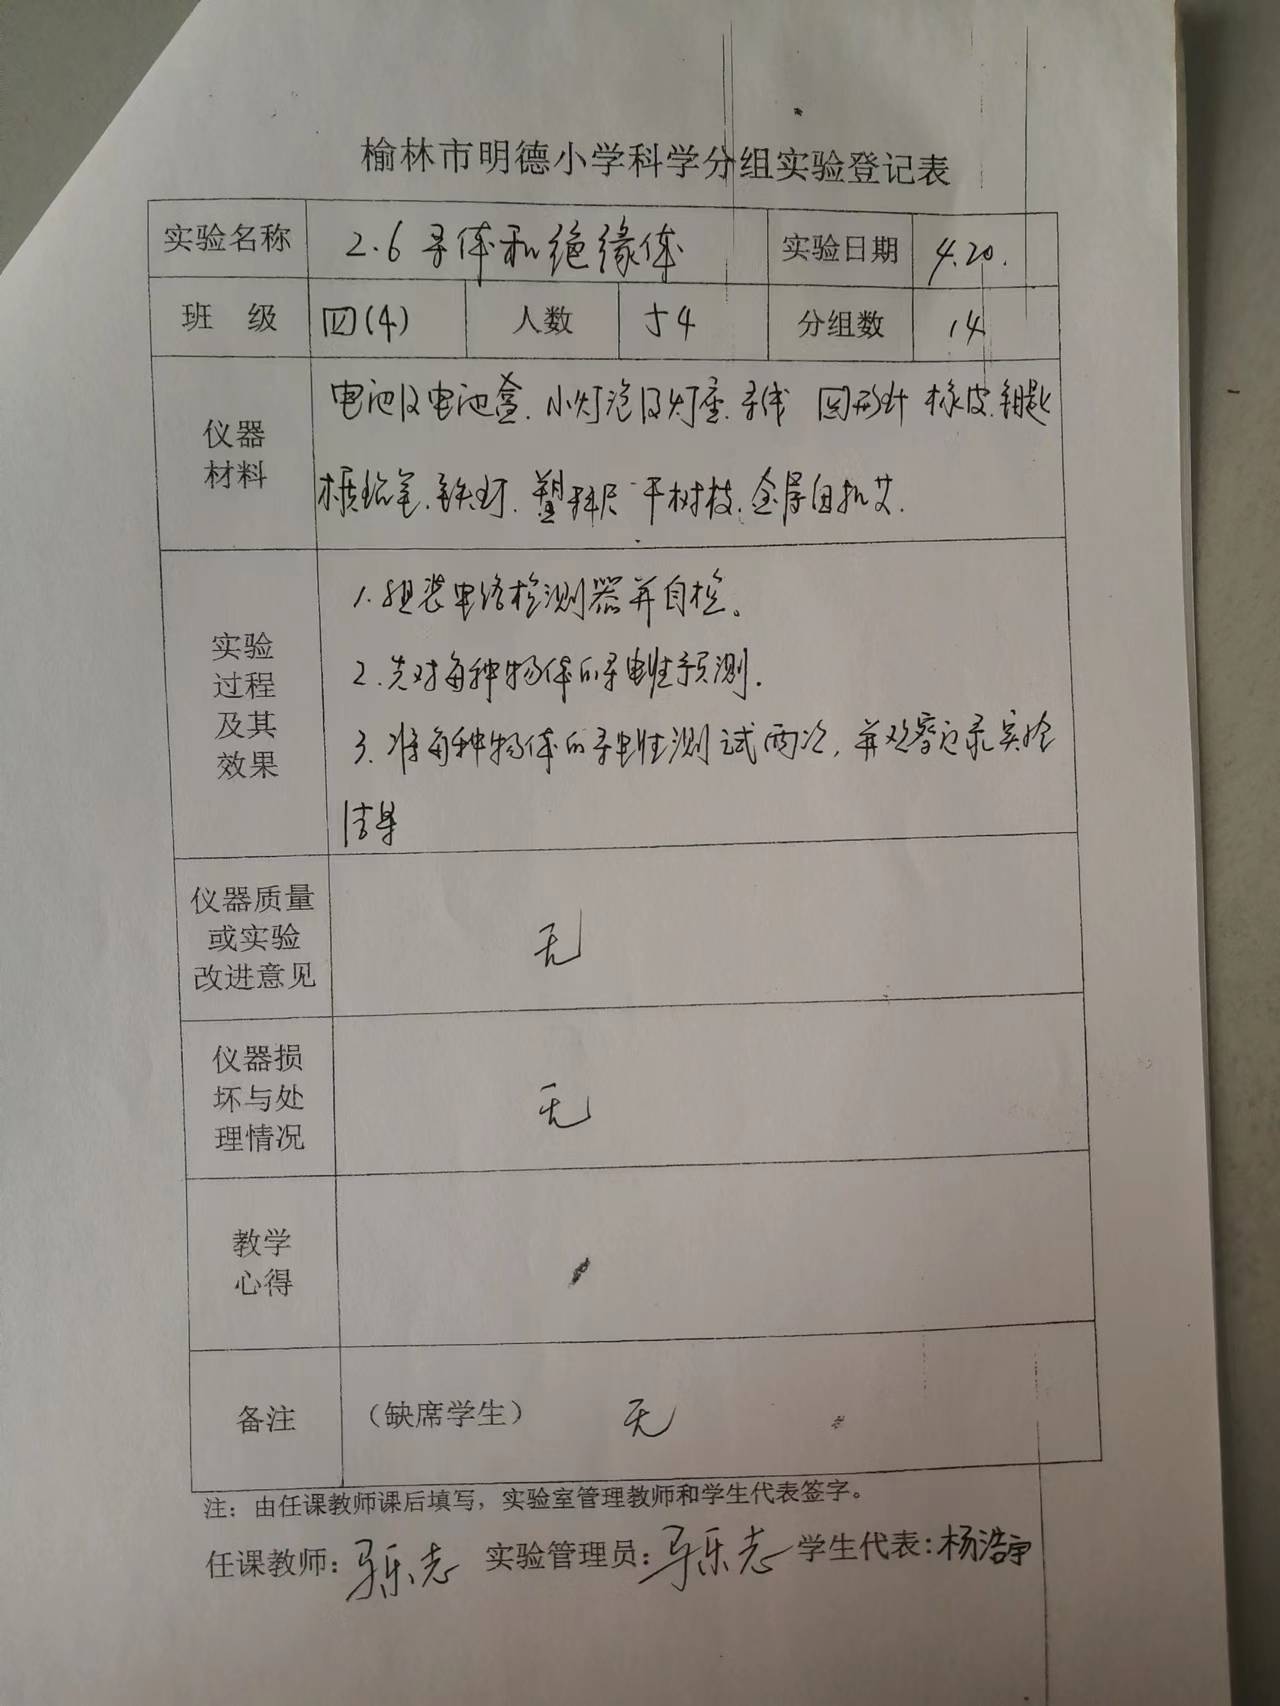 榆林市明德小学科学分组实验登记表
实验名称 2.6 导体和绝缘体 实验日期 4.20.
班 级 四(4) 人数 54 分组数 14
仪器材料
电池及电池盒、小灯泡及灯座、导线 回形针 橡皮、钥匙
木质铅笔、铁钉、塑料尺 干树枝、金属
实验过程及其效果
1. 组装电路检测器并自检。
2. 先对每种物体的导电性预测.
3. 准每种物体的导电性测试两次, 并观察记录实验
结果
仪器质量或实验改进意见 无
仪器损坏与处理情况 无
教学心得
备注 (缺席学生) 无
注：由任课教师课后填写，实验室管理教师和学生代表签字。
任课教师: 马乐志 实验管理员: 马乐志 学生代表: 杨浩宇